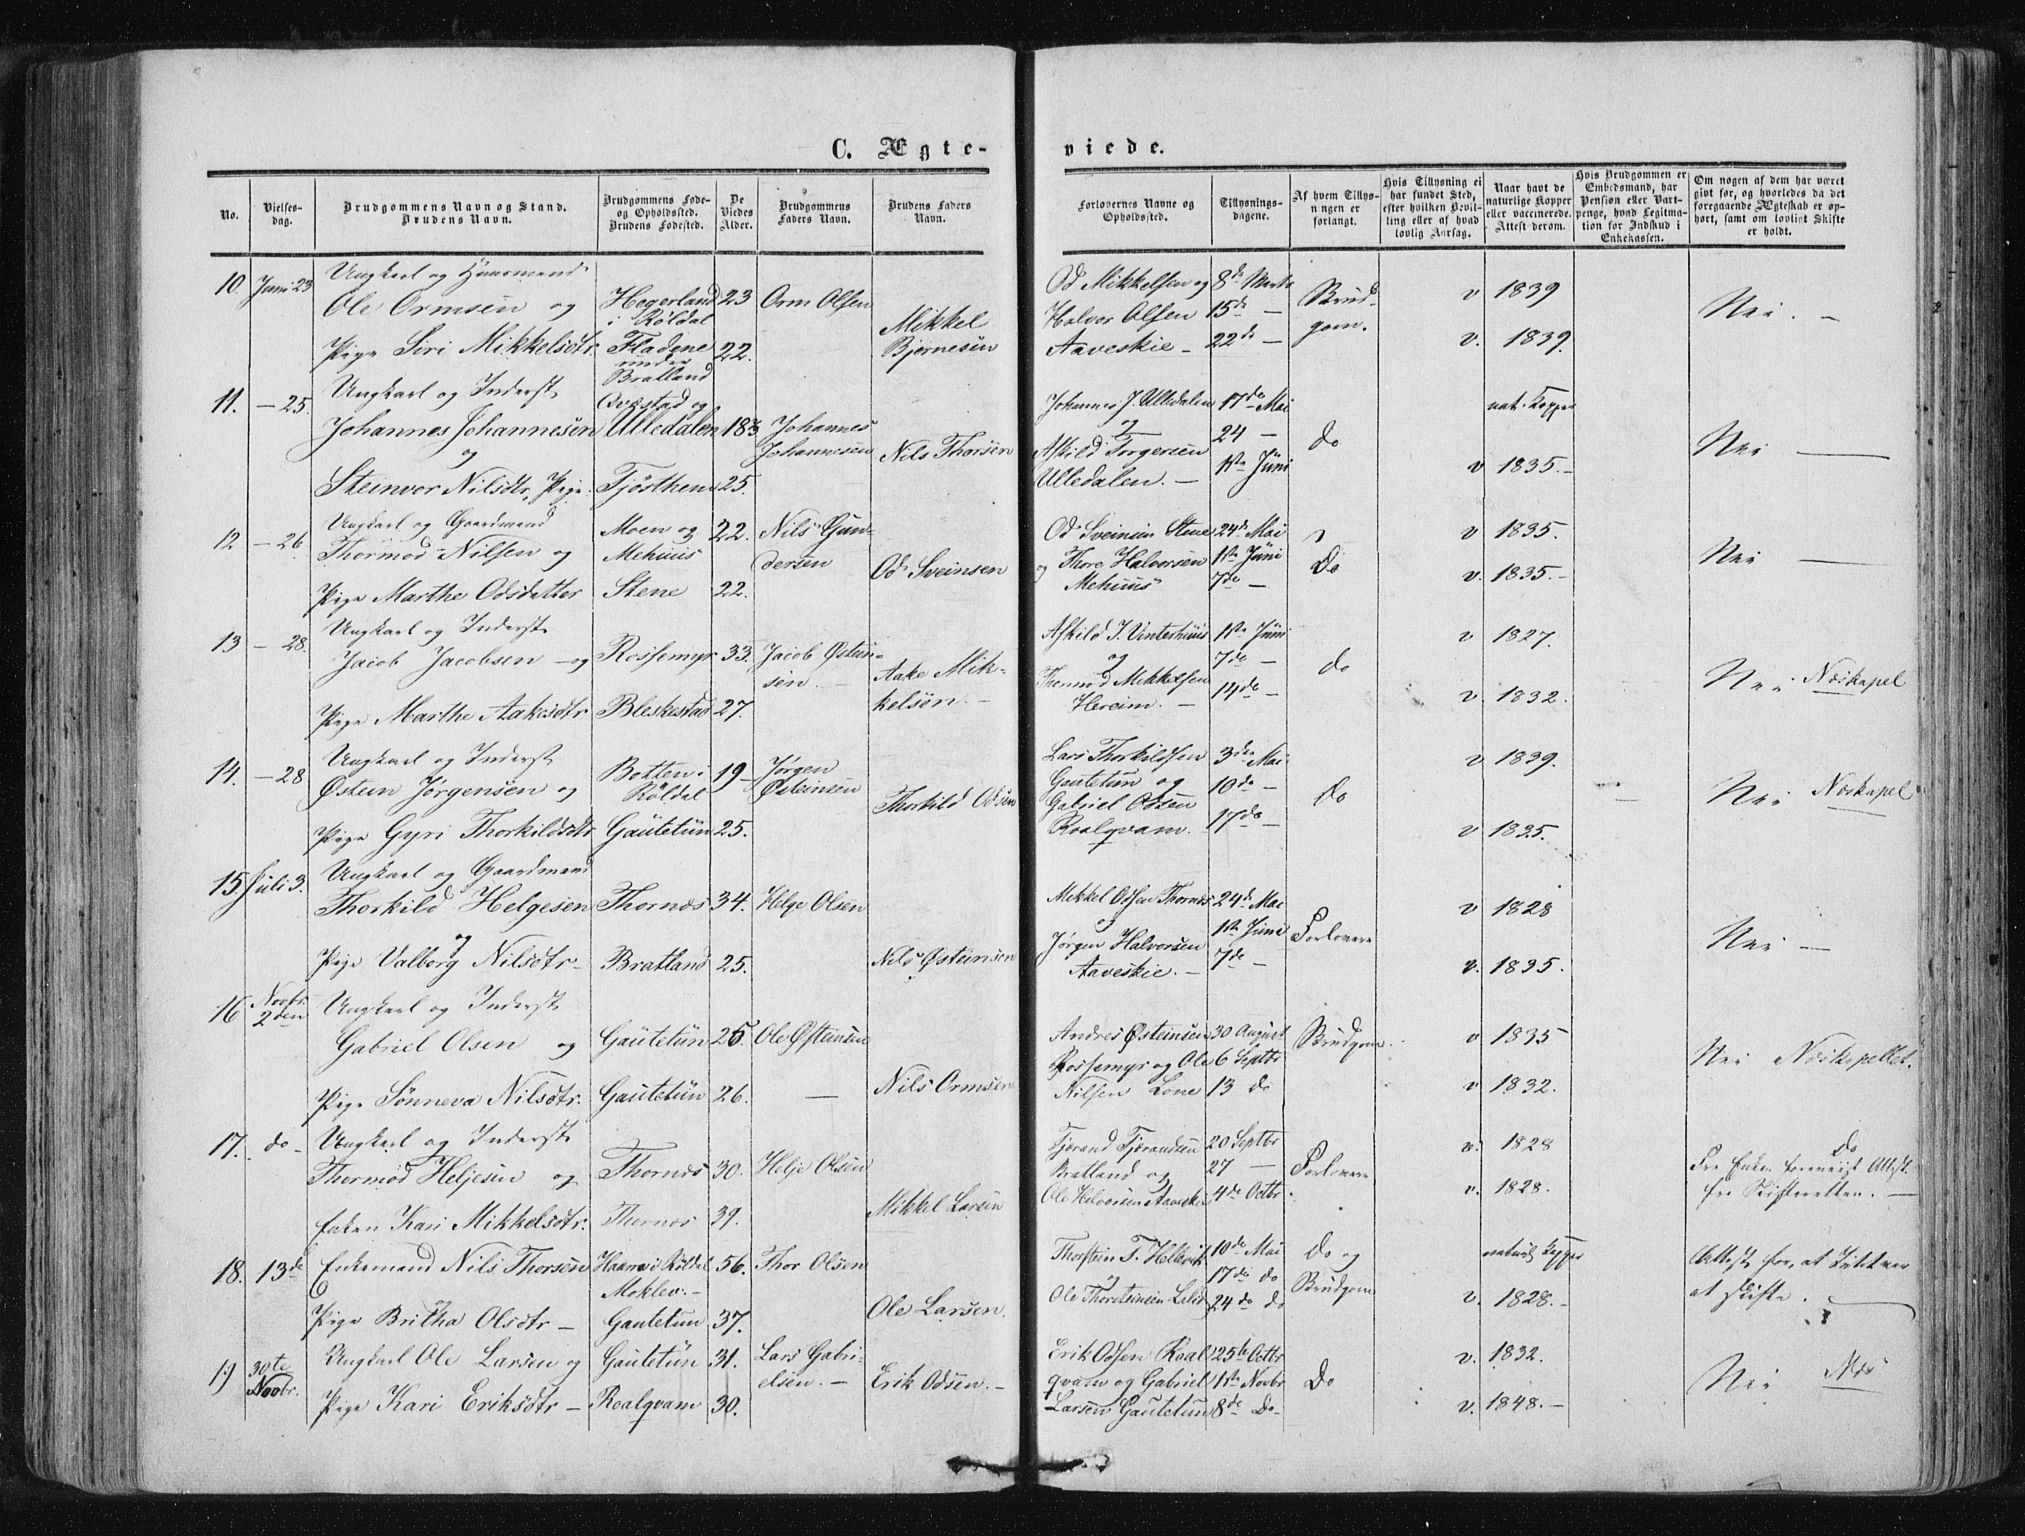 C. Ægte-
viede.
No.
Vielses-
dag.
Brudgommens Navn og Stand.
Brudens Navn.
Brudgommens Føde-
og Opholdssted.
Brudens Fødested.
De
Viedes
Alder.
Brudgommens
Faders Navn.
Brudens Faders
Navn.
Forlovernes Navne og
Opholdssted.
Tillysnings-
dagene.
Af hvem Tillys-
ningen er
forlangt.
Hvis Tillysning ei
har fundet Sted,
efter hvilken Bevil-
ling eller af hvad
lovlig Aarsag.
Naar havt de
naturlige Kopper
eller vaccinerede.
Attest derom.
Hvis Brudgommen er
Embedsmand, har
Pension eller Vart-
penge, hvad Legitima-
tion for Indskud i
Enkekassen.
Om nogen af dem har været
gift før, og hvorledes da det
foregaaende Ægteskab er op-
hørt, samt om lovligt Skifte
er holdt.
10. Juni 23 Ungkarl og Huusmand
Ole Ormsen og Hegerland 23 Orm Olsen
i Røldal
Pige Siri Mikkelsdtr. Fladene 22. Mikkel
under Bjørnesen
Bratland
Od Mikkelsen og 8de Marts
Halvor Olsen 15de — Brud- v 1839 Nei. —
Aaveskie — 22de — gom. v. 1839.
11. — 25. Ungkarl og Inderst Qvæstad og
Johannes Johannesen Ulledalen 18¾ Johannes
og Johannesen Nils Thorsen
Steinvor Nilsdtr, Pige. Tjösthem 25.
Johannes J. Ulledalen 17de Mai nat. Kopper
og 24 — do Nei —
Askild Torgersen 1ste Jüni v 1835. —
Ulledalen. —
12 — 26. Ungkarl og Gaardmand Moen og 22. Nils Gun-
Thormod Nilsen og Mehuus dersen Od Sveinsen
Pige Marthe Odsdatter Stene 22.
Od Sveinsen Stene 24de Mai v 1835.
og Thore Halvorsen 1ste Jüni Do Nei —
Mehuus 7de — v. 1835. —
13 — 28. Ungkarl og Inderst
Jacob Jacobsen — og Rossemyr 33. Jacob Østein-
sen. — Aake Mik-
Pige Marthe Aakesdtr Bleskestad 27. kelsen. —
Askild J. Vinterhuus 1ste Jüni v 1827.
og 7de — do
Thormod Mikkelsen 14de — v 1832. Nei Næskapel
Hereim. —
14. — 28 Ungkarl og Inderst Botten i 19 — Jørgen
Østein Jørgensen og Røldal Østeinsen Thorkild Odsen
Pige Gyri Thorkildsdtr Gautetün 25.
Lars Thorkildsen 3die Mai v 1839.
Gautetun og 10de — do Nei Næskapel
Gabriel Odsen
Roalqvam. 17de — v 1835.
15. Juli 3. Ungkarl og Gaardmand
Thorkild Helgesen Thornæs 34. Helge Olsen
og
Pige Valborg Nilsdtr — Bratland 25. Nils Østeinsen
Mikkel Odsen Thornæs 24de Mai v 1828
og 1ste Juni Forlovere Nei —
Jørgen Halvorsen 7de —
Aaveskie. — v. 1835.
16 Novbr. Ungkarl og Inderst
2den Gabriel Olsen og Gautetün 25. Ole Østeinsen
Pige Sønneva Nilsdtr. Gautetün 26. — Nils Ormsen
Andres Østeinsen 30 August Brudgom. v 1835
Rossemyr og Ole 6 Septbr Nei Næskapellet.
Nilsen Lone 13 do v 1832.
17. do Ungkarl og Inderst
Thormod Heljesen og Thornæs 30. Helje Olsen
Enken Kari Mikkelsdtr. Thornæs 39. Mikkel Larsen
Tjerand Tjerandsen 20 Septbr v. 1828 Do
Bratland og 27 — Forlovere For Enken foreviist Attest
Ole Halvorsen Aaveskie 4de Octbr v. 1828. fra Skifteretten. —
18. 13de Enkemand Nils Thorsen Haarre i Røldal 56. Thor Olsen
Moklev. —
Pige Britha Olsdtr — Gautetun 37. Ole Larsen.
Thorstein T. Hellevik 10de Mai do og naturl Kopper Attest for, at Intet var
og 17de do Brudgom at skifte.
Ole Thorsteinsen 24de do v. 1828. —
19 30te Ungkarl Ole Larsen og Gautetün 31. Lars Gabri-
Novbr. elsen. — Erik Odsen. —
Pige Kari Eriksdtr — Roalqvam 30.
Erik Odsen Roal 25de Octbr v. 1832.
qvam og Gabriel 1ste Novbr Do Nei Næs
Larsen Gautetun 8de Do — v. 1848. —